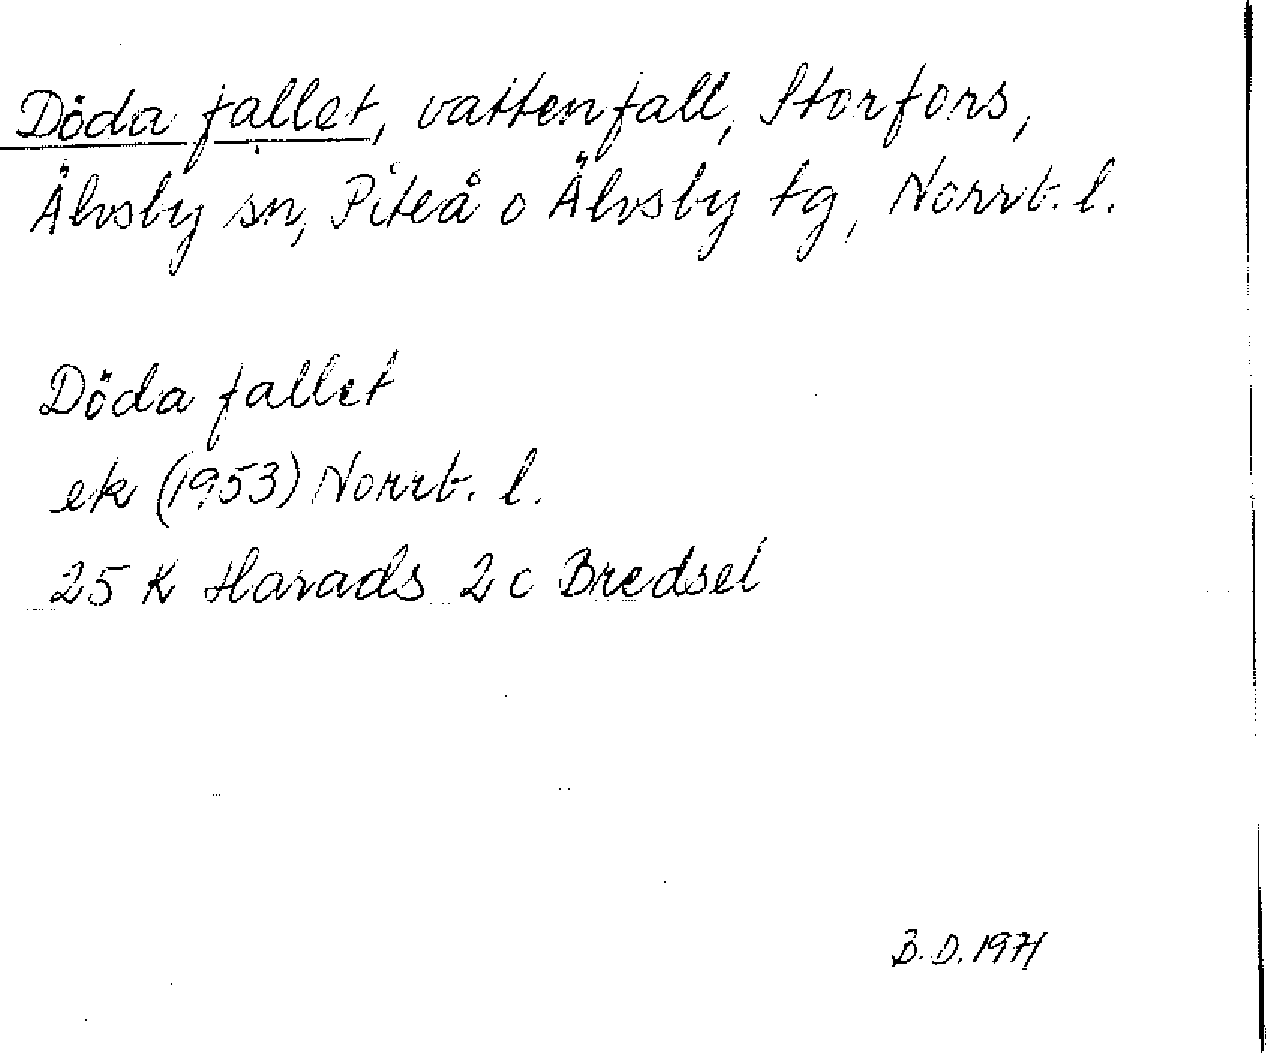 Döda fallet, vattenfall, Storfors,
Älvsby sn, Piteå o Älvsby tg, Norrb. l.
Döda fallet
ek (1953) Norrb. l.
25 K Harads 2 c Bredsel
B. D. 1971